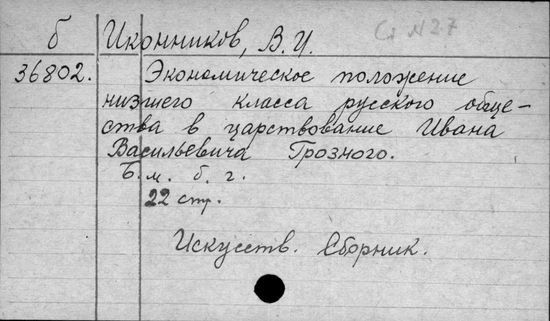 б Иконников, В.И.
36802. Экономическое положение
низшего класса русского обще-
ства в царствование Ивана
Васильевича Грозного.
Б. м. б. г.
22 стр.
Искусств. Сборник.